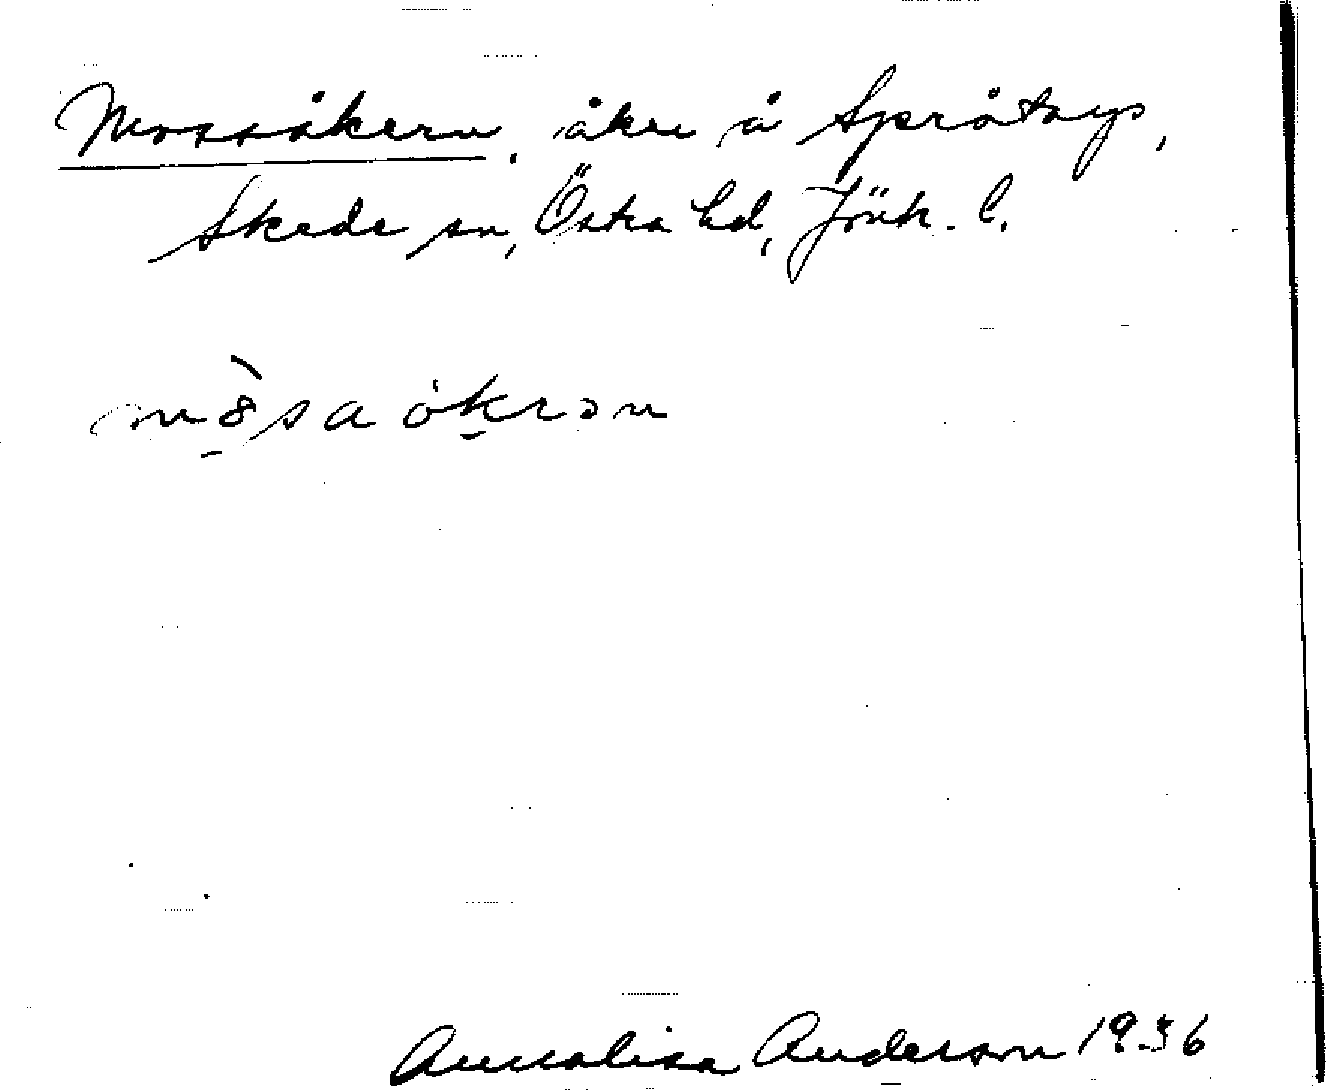 Mossåkern, åker å Språtorp,
Skede sn, Östra hd, Jönk. l.
Annalisa Anderson 1936